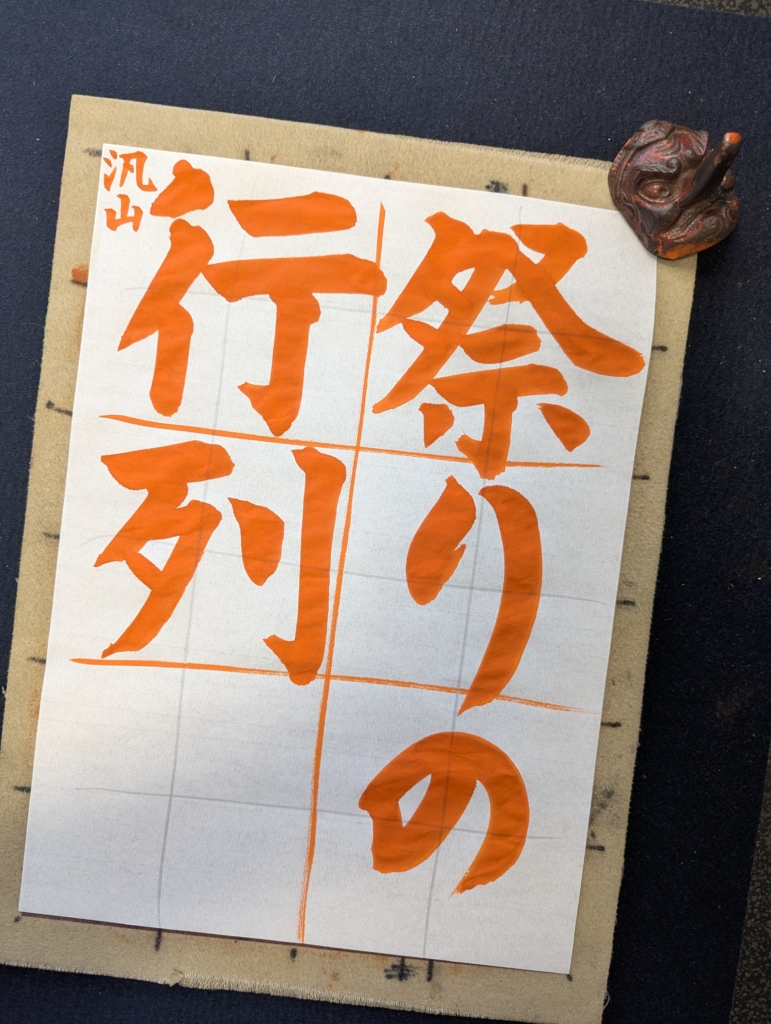 祭りの
行列
汎山